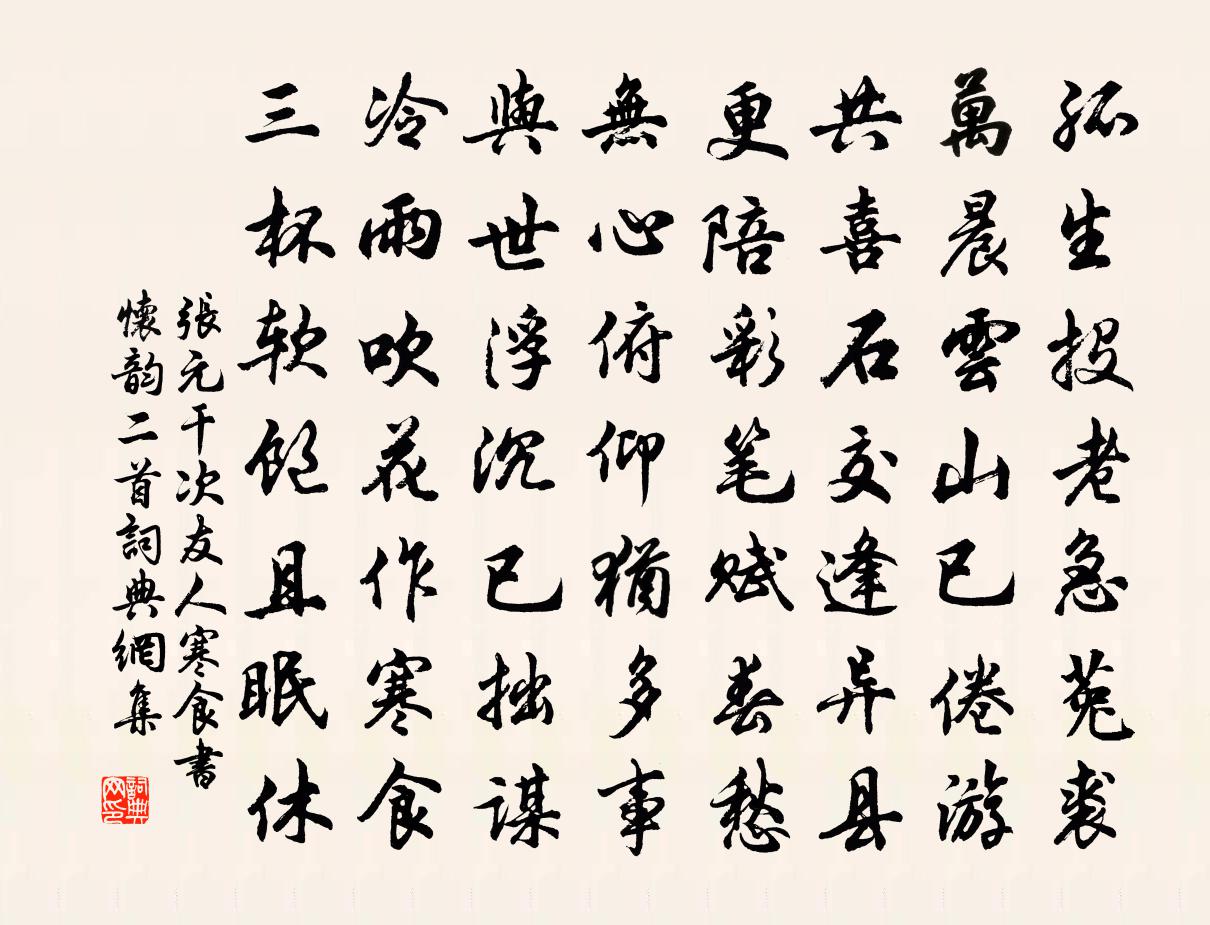 孤生投老急菟裘
萬晨雲山已倦游
共喜石交逢异县
更陪彩笔赋春愁
無心俯仰猶多事
與世浮沉已拙谋
冷雨吹花作寒食
三杯软饱且眠休
張元干次友人寒食書
懷韵二首詞典網集
詞典
网印